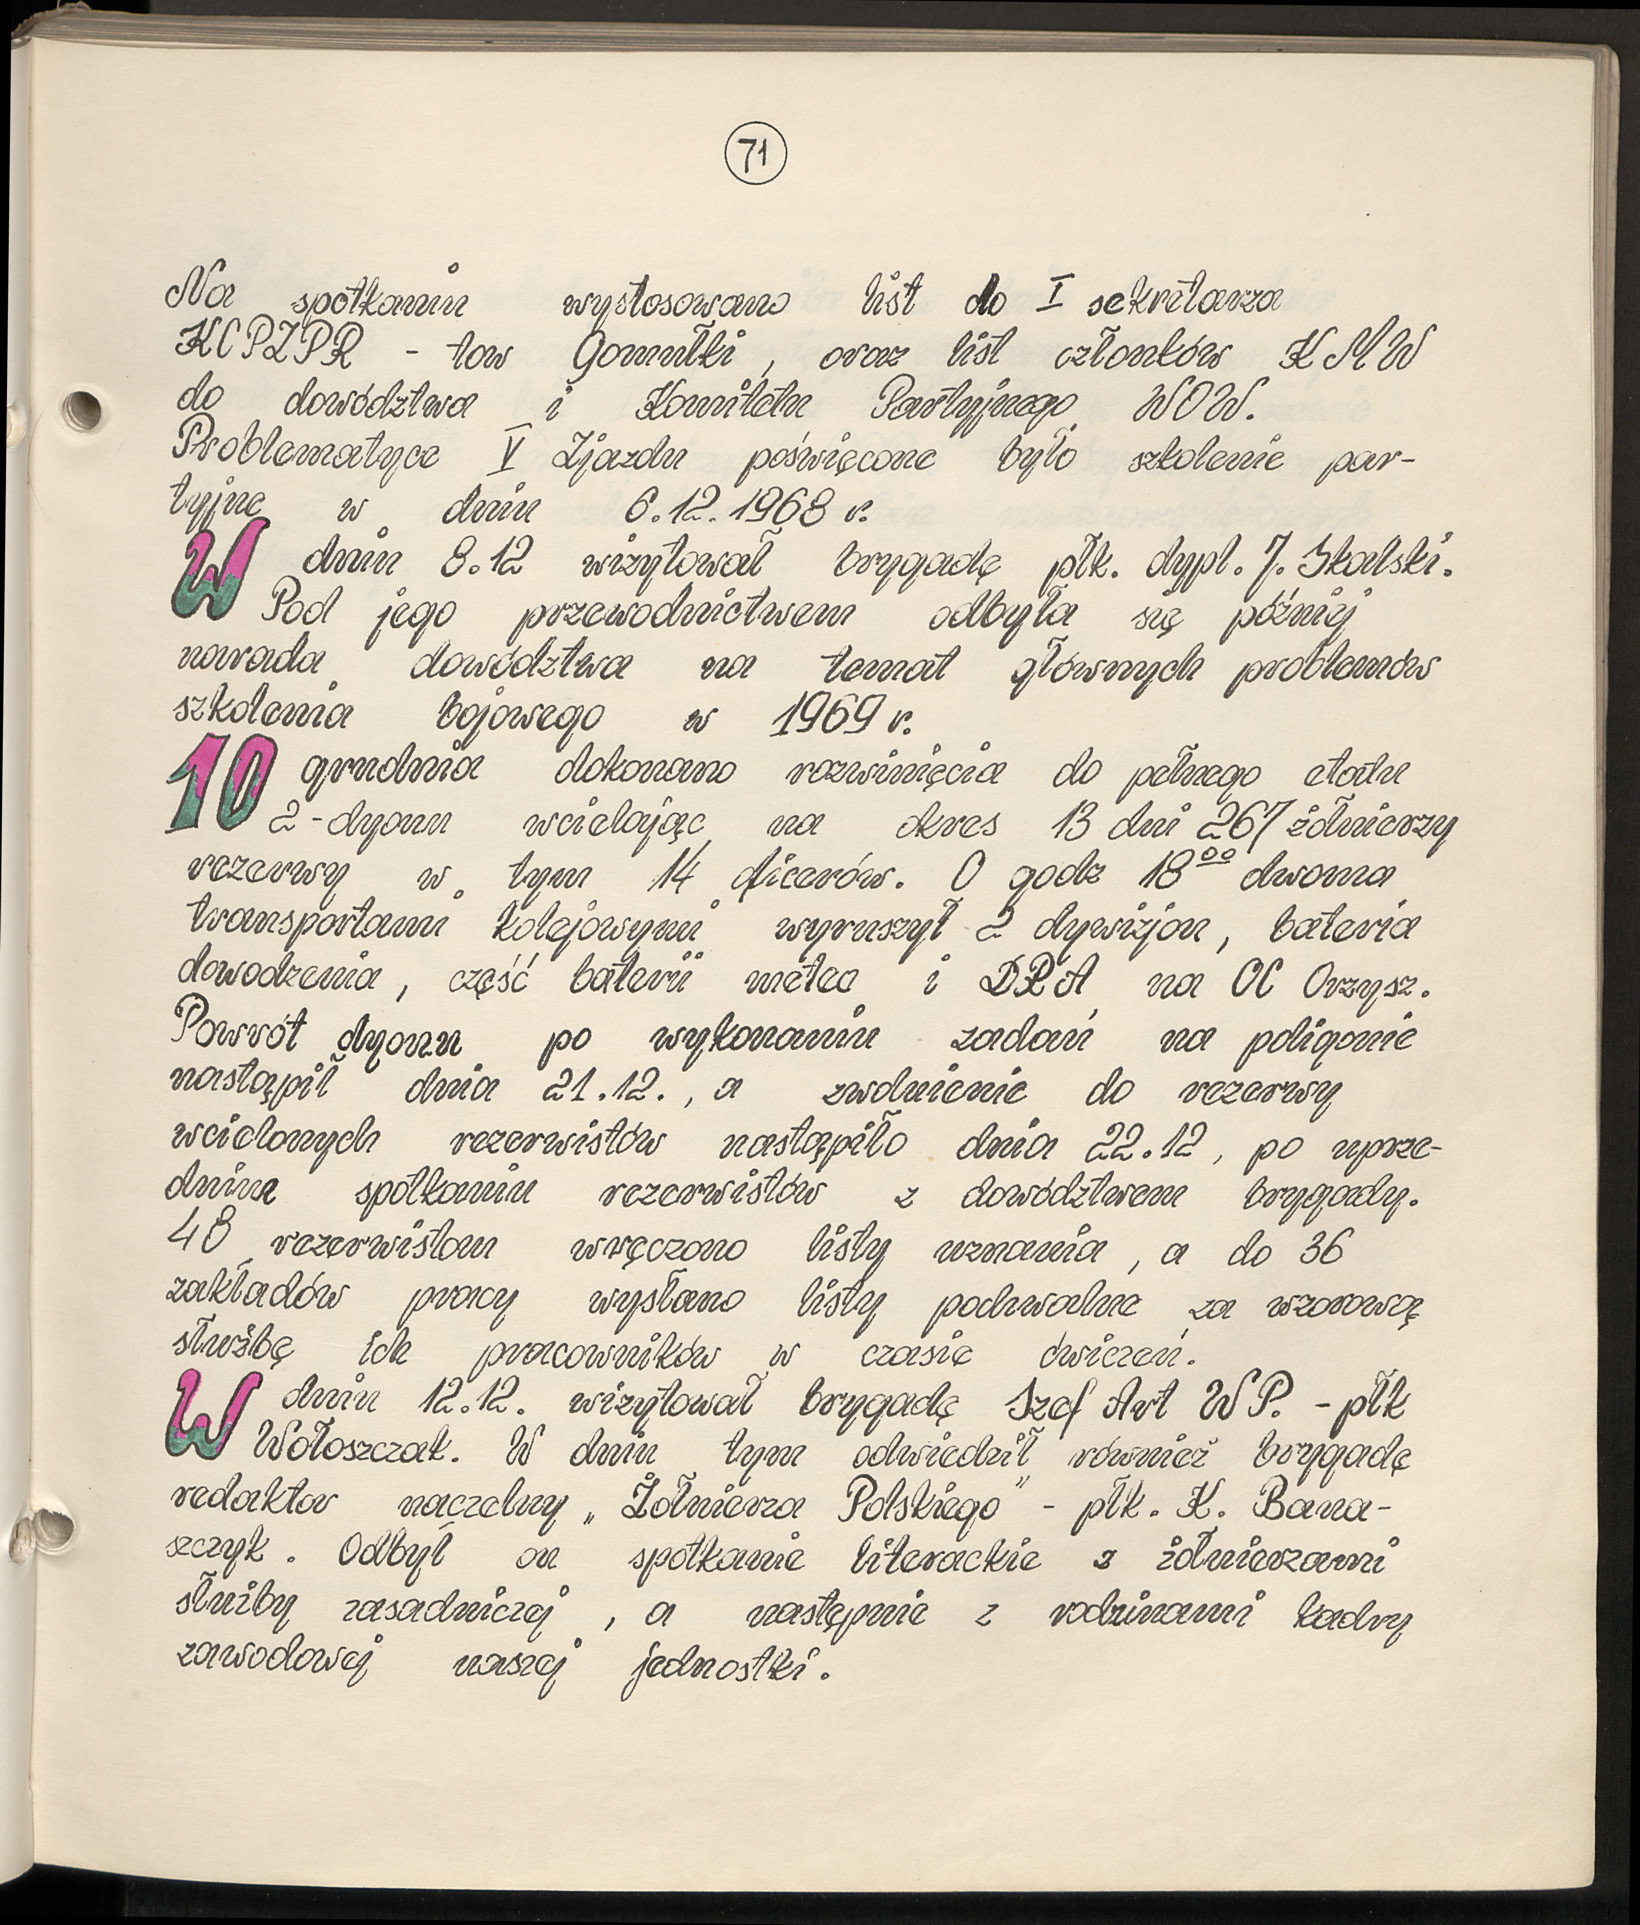 71
Na spotkaniu wystosowano list do I sekretarza
KCPZPR - tow Gomułki, oraz list członków KMW
do dowództwa i Komitetu Partyjnego WOW.
Problematyce V Zjazdu poświęcone było szkolenie par-
tyjne w dniu 6.12.1968 r.
W dniu 8.12 wizytował brygadę płk. dypl. J. Skalski.
Pod jego przewodnictwem odbyła się później
narada dowództwa na temat głównych problemów
szkolenia bojowego w 1969 r.
10 grudnia dokonano rozwinięcia do pełnego etatu
2-dyonu wcielając na okres 13 dni 267 żołnierzy
rezerwy w tym 14 oficerów. O godz 18⁰⁰ dwoma
transportami kolejowymi wyruszył 2 dywizjon, bateria
dowodzenia, część baterii meteo i DRA na OC Orzysz.
Powrót dyonu po wykonaniu zadań na poligonie
nastąpił dnia 21.12., a zwolnienie do rezerwy
wcielonych rezerwistów nastąpiło dnia 22.12, po uprze-
dnim spotkaniu rezerwistów z dowództwem brygady.
48 rezerwistom wręczono listy uznania, a do 36
zakładów pracy wysłano listy pochwalne za wzorową
służbę ich pracowników w czasie ćwiczeń.
W dniu 12.12. wizytował brygadę Szef Art WP. - płk
Wołoszczak. W dniu tym odwiedził również brygadę
redaktor naczelny „Żołnierza Polskiego" - płk. K. Bana-
szczyk. Odbył on spotkanie literackie z żołnierzami
służby zasadniczej, a następnie z rodzinami kadry
zawodowej naszej jednostki.